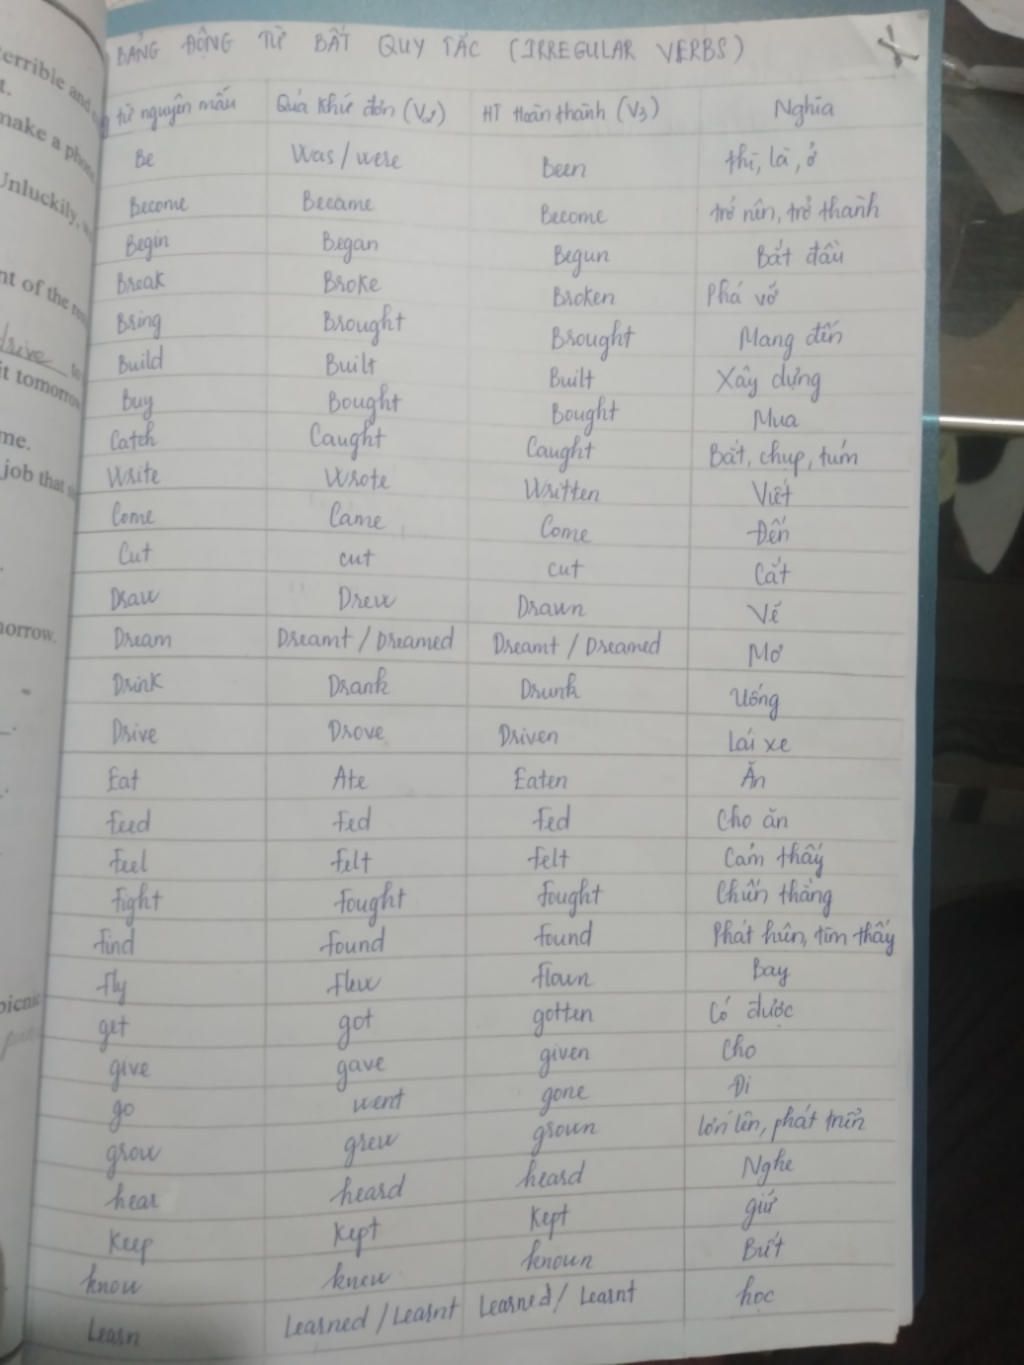 terrible and
t.
make a phone
Unluckily,
nt of the
drive to
it tomorrow
me.
job that
norrow.
picnic
BẢNG ĐỘNG TỪ BẤT QUY TẮC (IRREGULAR VERBS)
từ nguyên mẫu Quá khứ đơn (V2) HT Hoàn thành (V3) Nghĩa
Be Was/were Been thì, là, ở
Become Became Become trở nên, trở thành
Begin Began Begun Bắt đầu
Break Broke Broken Phá vỡ
Bring Brought Brought Mang đến
Build Built Built Xây dựng
Buy Bought Bought Mua
Catch Caught Caught Bắt, chụp, túm
Write Wrote Written Viết
Come Came Come Đến
Cut cut cut Cắt
Draw Drew Drawn Vẽ
Dream Dreamt / Dreamed Dreamt / Dreamed Mơ
Drink Drank Drunk Uống
Drive Drove Driven Lái xe
Eat Ate Eaten Ăn
feed fed fed Cho ăn
feel felt felt Cảm thấy
fight fought fought Chiến thắng
find found found Phát hiện, tìm thấy
fly flew flown Bay
get got gotten Có được
give gave given Cho
go went gone Đi
grow grew grown lớn lên, phát triển
hear heard heard Nghe
keep kept kept giữ
know knew known Biết
Learn Learned / Learnt Learned / Learnt học